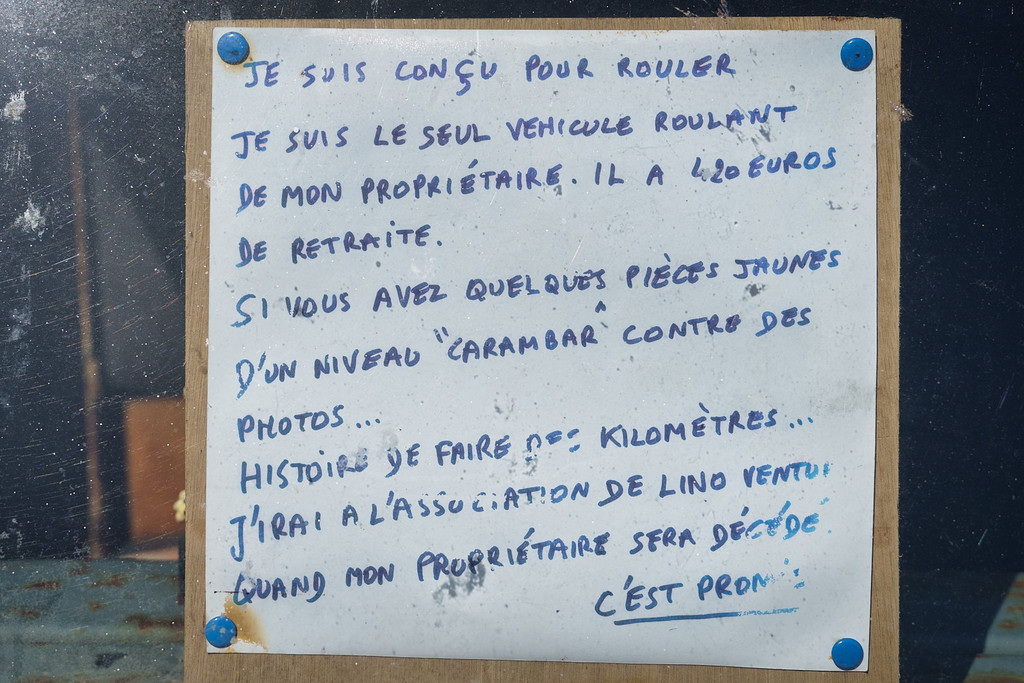 JE SUIS CONÇU POUR ROULER
JE SUIS LE SEUL VEHICULE ROULANT
DE MON PROPRIÉTAIRE. IL A 420 EUROS
DE RETRAITE.
SI VOUS AVEZ QUELQUES PIÈCES JAUNES
D'UN NIVEAU "CARAMBAR" CONTRE DES
PHOTOS...
HISTOIRE DE FAIRE DES KILOMÈTRES...
J'IRAI A L'ASSOCIATION DE LINO VENTU
QUAND MON PROPRIÉTAIRE SERA DÉCÉDÉ.
C'EST PROMIS